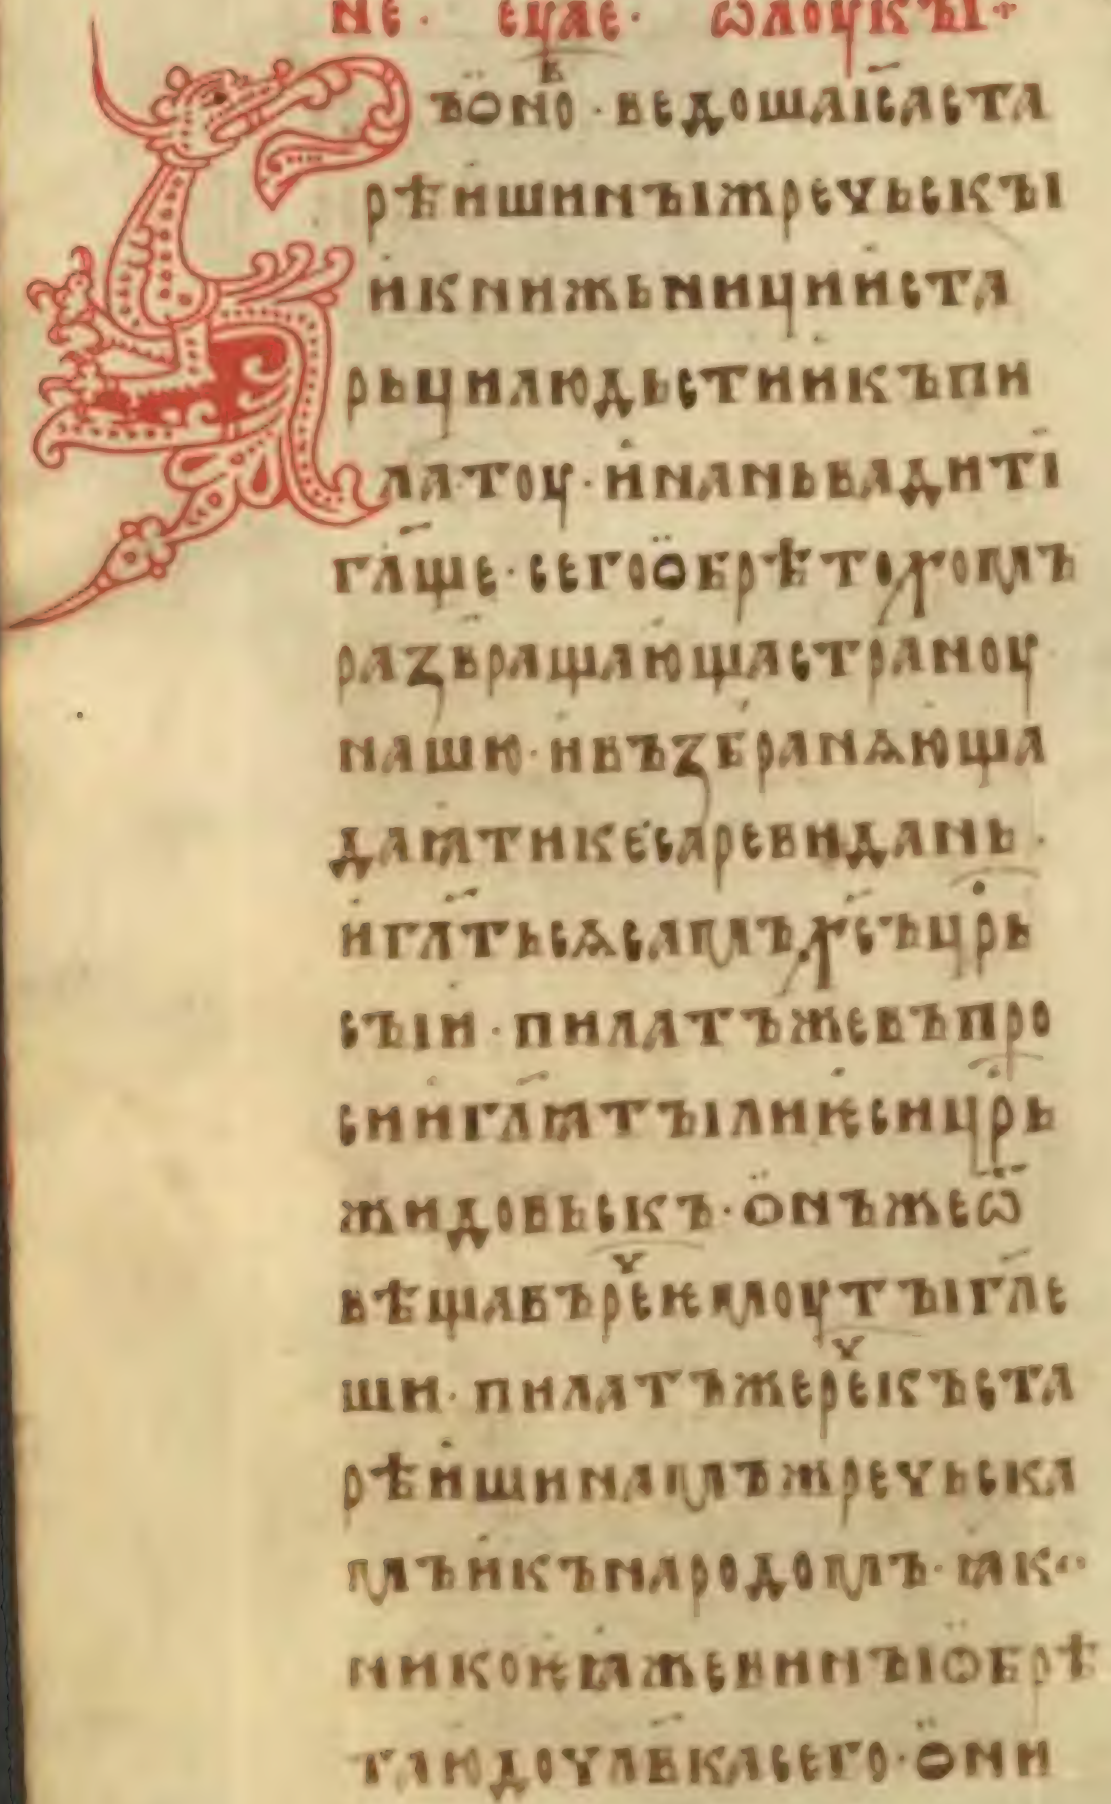 не · еѵⷢ҇ле · ѡлоукꙑ ⁘
Въ оⷡ҇но · ведоша і҃са ста
рѣйшинꙑ жречьскꙑ
и҆ книжьници и҆ ста
рьци людьстии҆ къ пи
лату · и҆ нань вадити
гл҃ще · сего ѻбрѣтохомъ
развращающа страноу
нашю · и҆ възбранѧюща
даꙗти кесареви дань ·
и҆ гл҃тьсѧ самъ х҃съ цр҃ь
сꙑи · пилатъ же въпро
си и҆ гл҃ꙗ тꙑ ли ѥси цр҃ь
жидовьскъ · ѻнъ же ѿ
вѣщавъ реⷱ҇ ѥмоу тꙑ гл҃е
ши · пилатъ же реⷱ҇ къ ста
рѣйшинамъ жречьска
мъ и҆ къ народомъ · ꙗко
никоѥꙗже винꙑ ѻбрѣ
таю до чл҃вка сего · ѻни